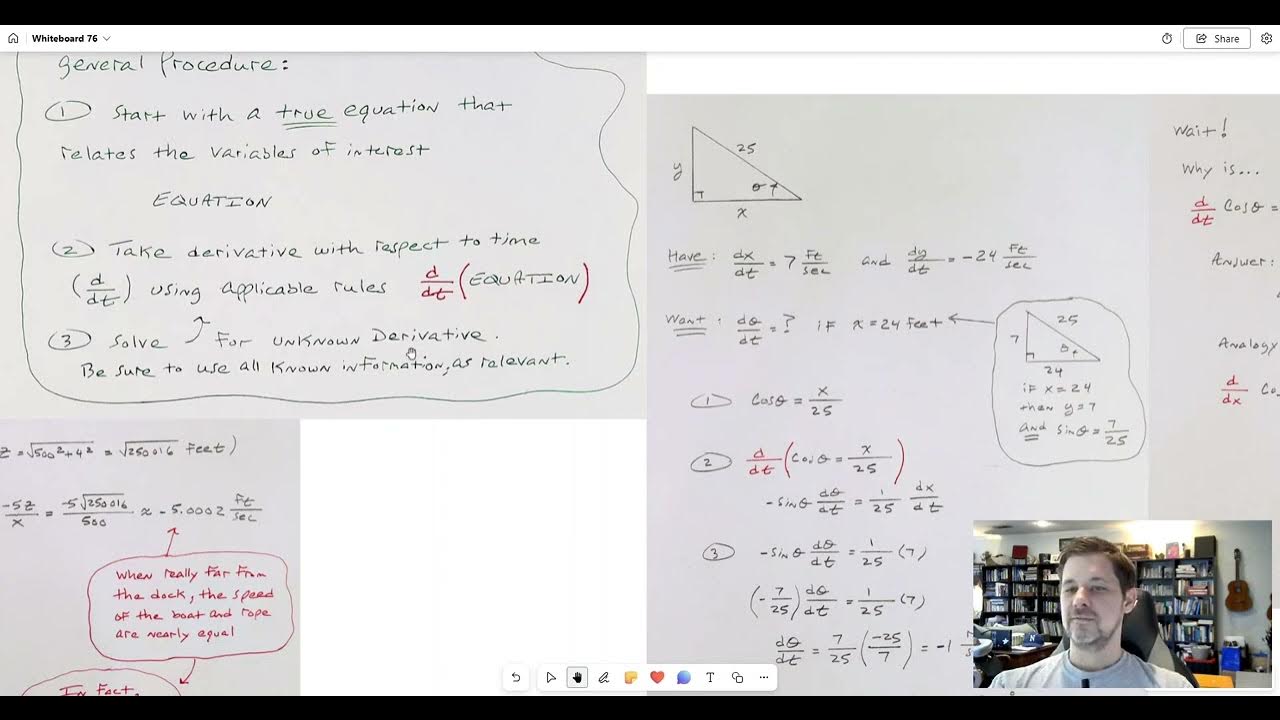 Whiteboard 76
Share
general Procedure:
① Start with a true equation that
relates the variables of interest
EQUATION
② Take derivative with respect to time
(d/dt) using applicable rules d/dt(EQUATION)
③ Solve for unknown Derivative.
Be sure to use all known information, as relevant.
z = √(500² + 4²) = √250016 feet)
-5z/x = -5√250016/500 ≈ -5.0002 ft/sec
When really far from
the dock, the speed
of the boat and rope
are nearly equal
In Fact,
y
25
θ
x
Have: dx/dt = 7 ft/sec and dy/dt = -24 ft/sec
Want: dθ/dt = ? if x = 24 feet
7
25
θ
24
if x = 24
then y = 7
and sinθ = 7/25
① Cosθ = x/25
② d/dt(Cosθ = x/25)
-sinθ dθ/dt = 1/25 dx/dt
③ -sinθ dθ/dt = 1/25 (7)
(-7/25) dθ/dt = 1/25 (7)
dθ/dt = 7/25 (-25/7) = -1
Wait!
Why is...
d/dt Cosθ =
Answer:
Analogy
d/dx Co
T